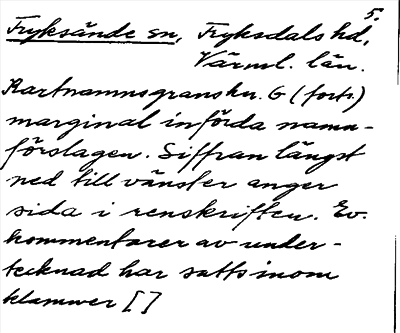 5.
Fryksände sn, Fryksdals hd,
Värml. län.
Kartnamnsgranskn. G (forts.)
marginal införda namn-
förslagen. Siffran längst
ned till vänster anger
sida i renskriften. Ev.
kommentarer av under-
tecknad har satts inom
klammer [ ]